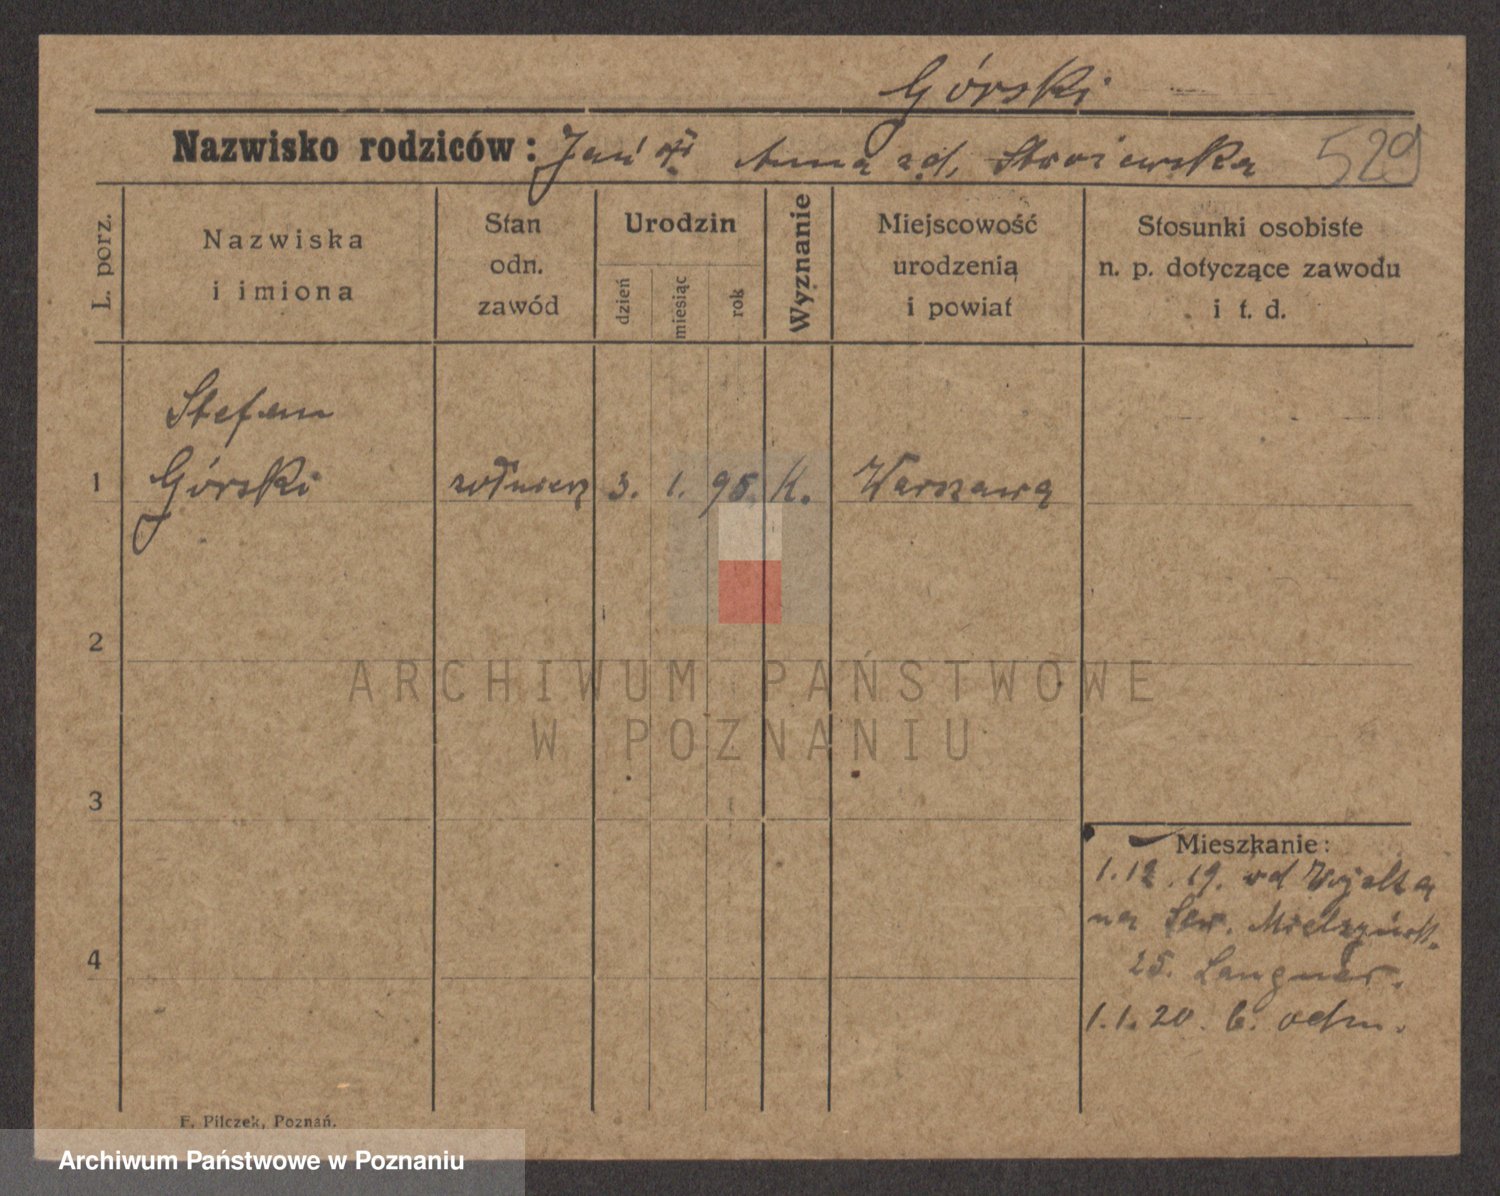 Górski
Nazwisko rodziców: Jan i Anna zd.
529
L. porz.
Nazwiska
i imiona
Stan
odn.
zawód
Urodzin
dzień
miesiąc
rok
Wyznanie
Miejscowość
urodzenia
i powiat
Stosunki osobiste
n. p. dotyczące zawodu
i t. d.
Stefan
1 Górski żołnierz 3. 1. 95. K. Warszawa
2
ARCHIWUM PAŃSTWOWE
W POZNANIU
3
Mieszkanie:
1.12.19. od Wojska
na Sew. Mielżyńsk.
4
25. Langner.
1.1.20. b. odm.
F. Pilczek, Poznań.
Archiwum Państwowe w Poznaniu